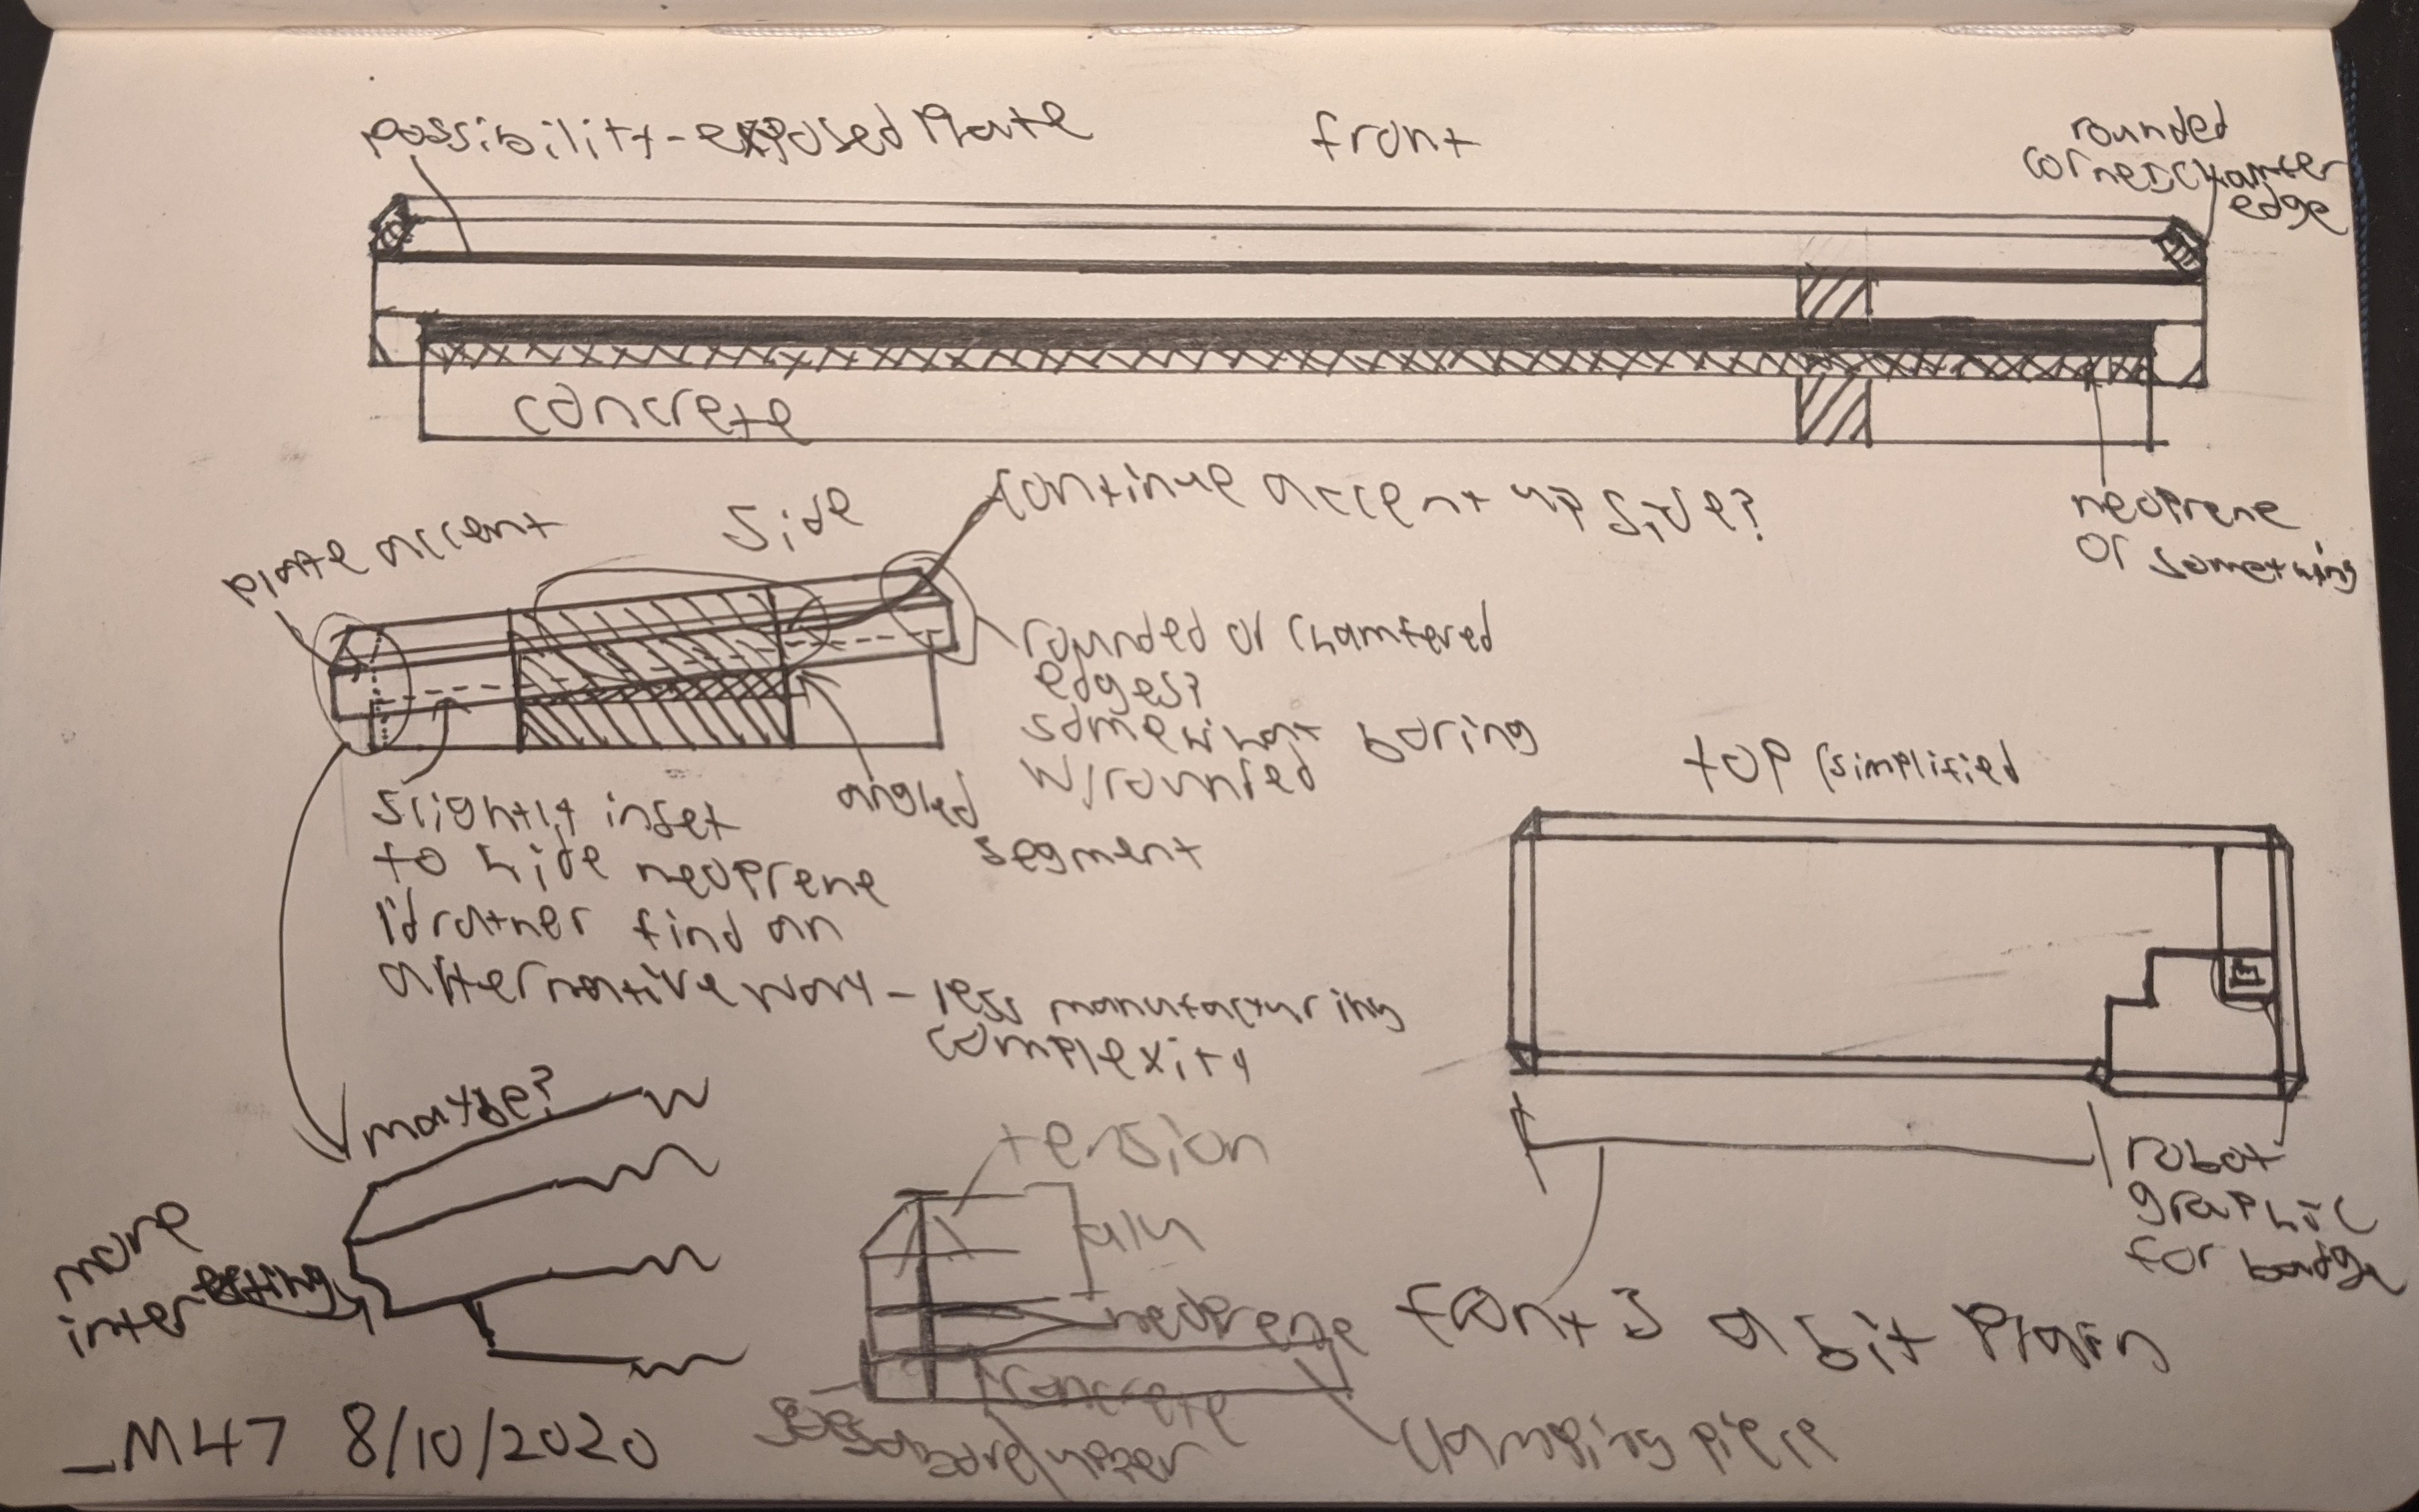 possibility-exposed plate
front
rounded
corners, chamfer
edge
concrete
neoprene
or something
plate accent
side
continue accent up side?
rounded or chamfered
edges?
somewhat boring
w/rounded
angled
segment
slightly inset
to hide neoprene
I'd rather find an
alternative way - less manufacturing
complexity
top (simplified
robot
graphic
for badge
maybe?
more
interesting
tension
alu
neoprene
concrete
clamping piece
front is a bit plain
_M47 8/10/2020